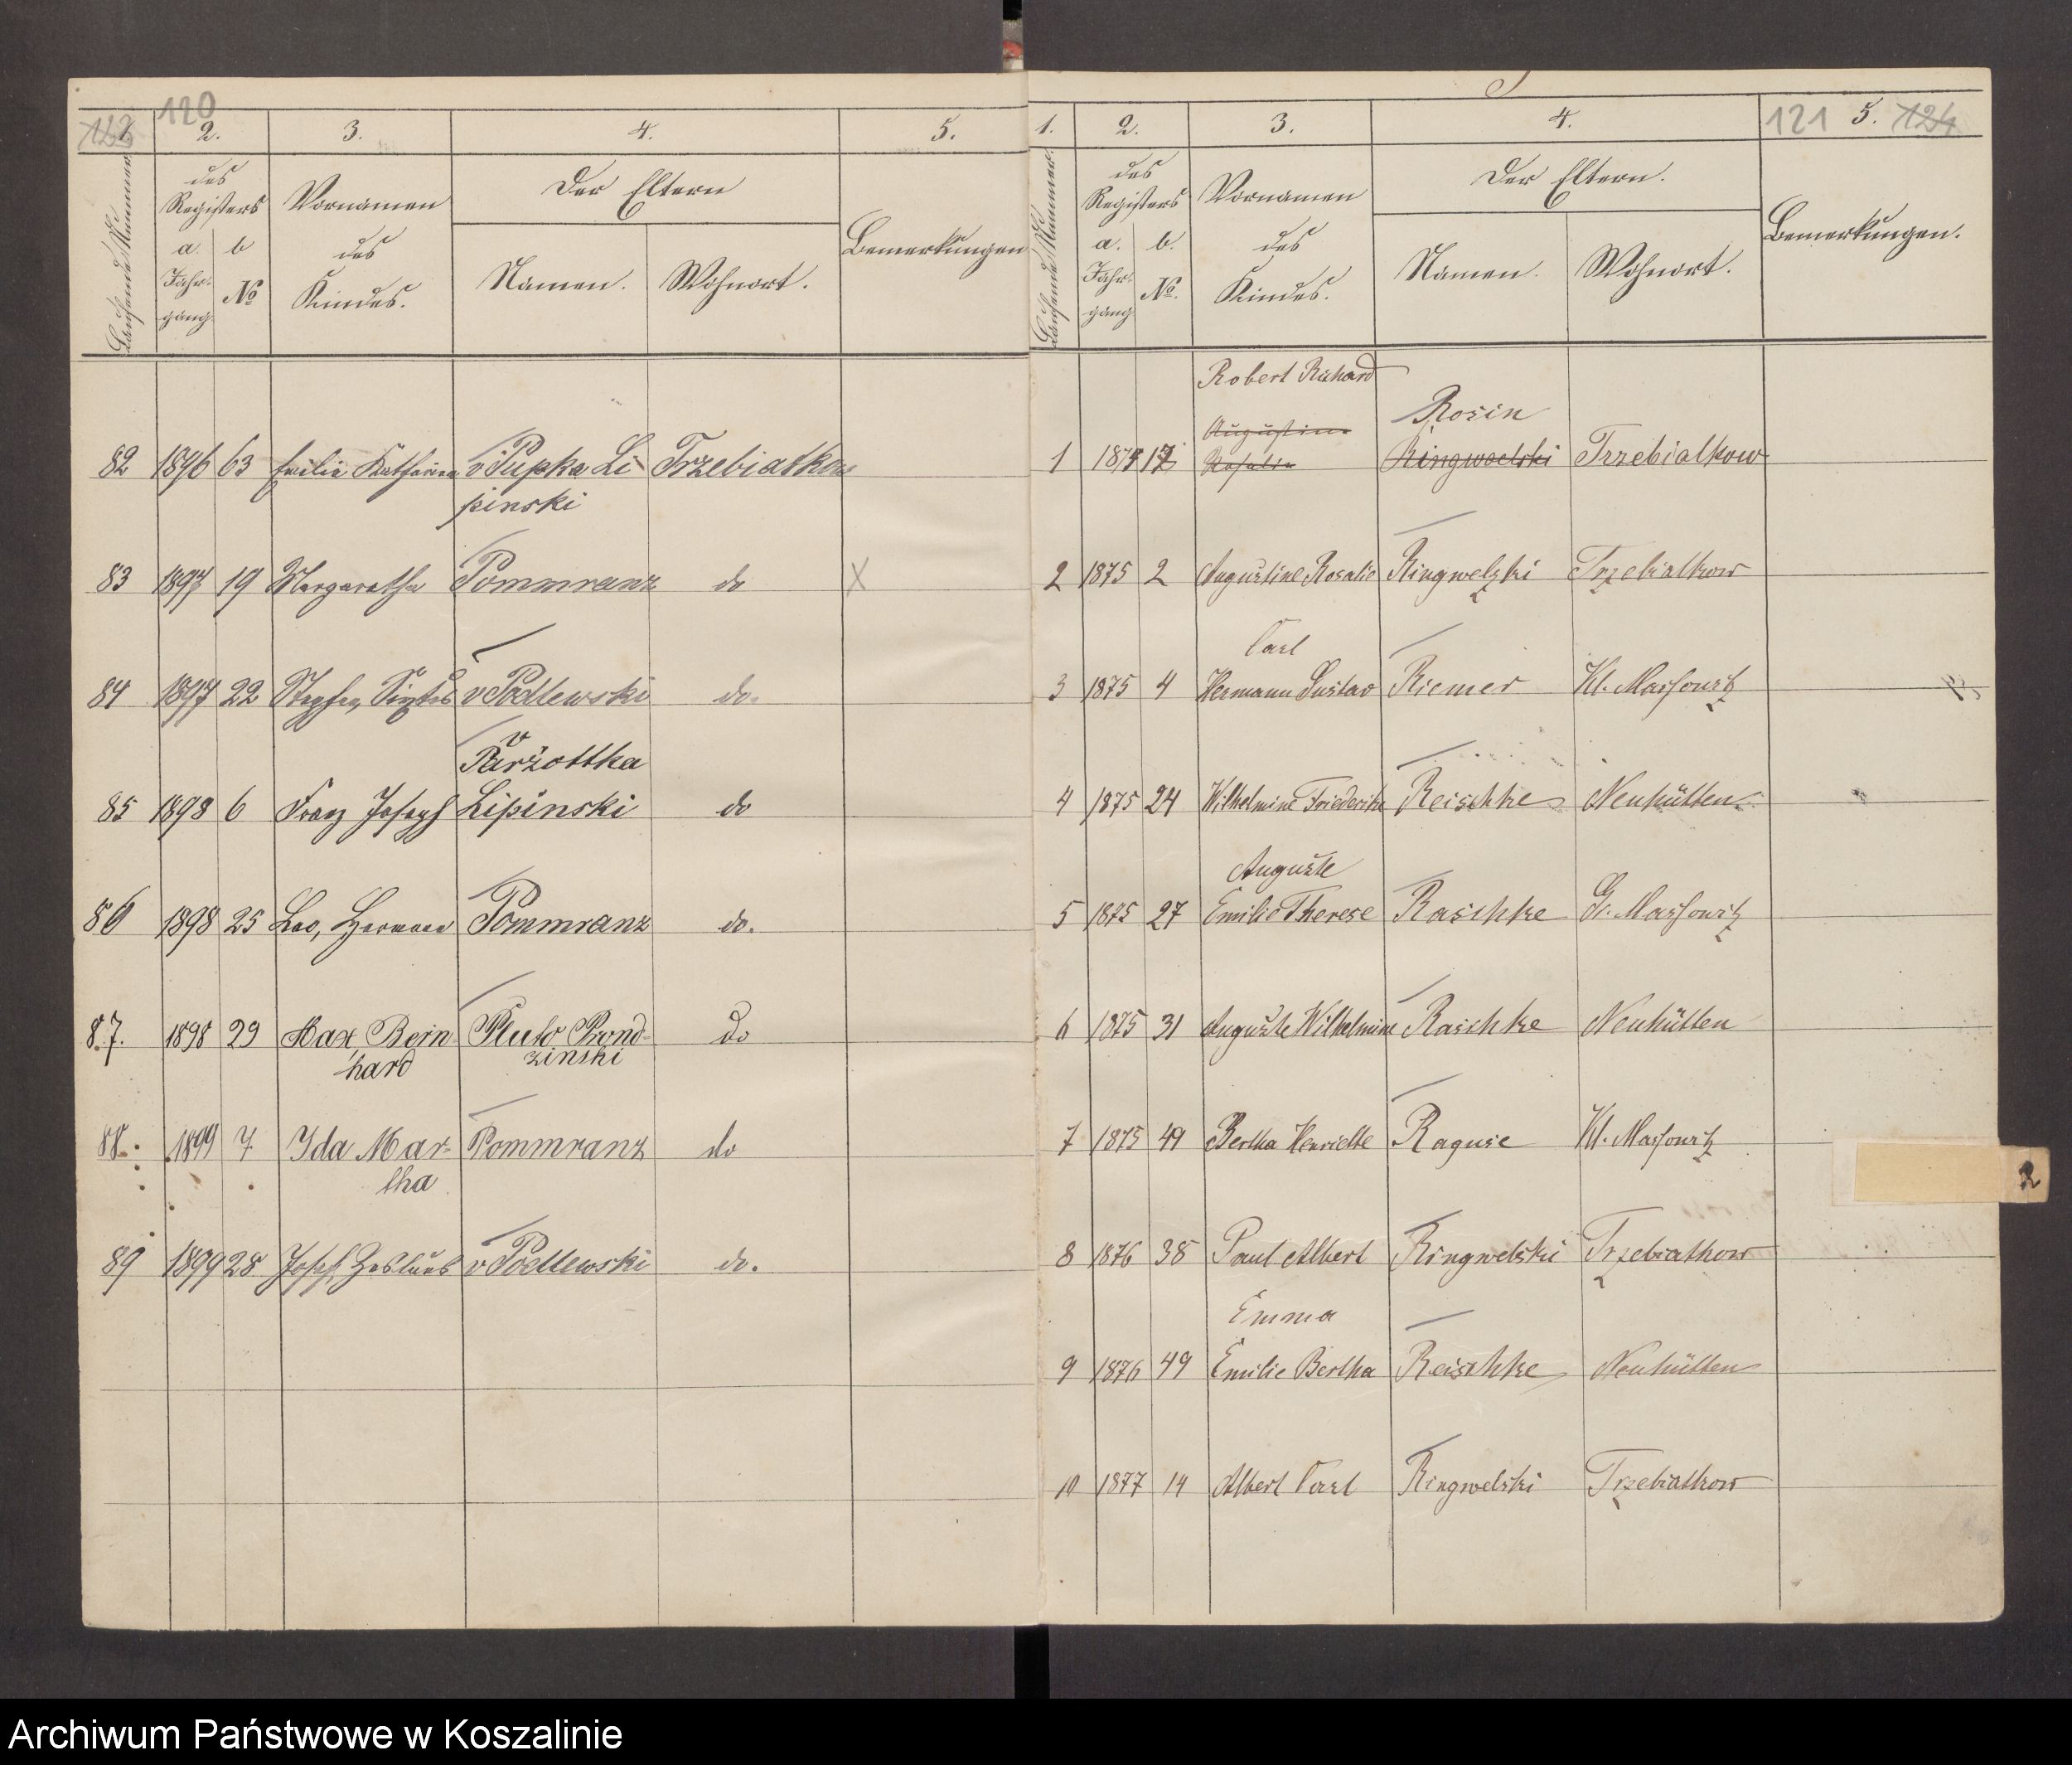 120
123
1. 2. 3. 4. 5.
Laufende Nummer
des Registers
a. Jahrgang
b No
Vornamen des Kindes.
Der Eltern
Namen. Wohnort.
Bemerkungen
82 1896 63 Emilie Katharina v Pupka Li Trzebiatkow
pinski
83 1897 19 Margarethe Pommranz do X
84 1897 22 Stephan v Podlewski do.
v
Parzottka
85 1898 6 Franz Joseph Lipinski do
86 1898 25 Leo, Hermann Pommranz do.
87. 1898 29 Max Bern- Pluto Prond- do
hard zinski
88. 1899 7 Ida Mar- Pommranz do
tha
89 1899 28 Joseph v Podlewski do.
121 124
1. 2. 3. 4. 5.
Laufende Nummer
des Registers
a. Jahrgang
b. No.
Vornamen des Kindes.
Der Eltern.
Namen. Wohnort.
Bemerkungen.
Robert Richard
Augustine Rosin
1 1875 17 Rosalie Ringwelski Trzebiatkow
2 1875 2 Augustine Rosalie Ringwelski Trzebiatkow
Carl
3 1875 4 Hermann Gustav Riemer Kl. Massowitz
4 1875 24 Wilhelmine Friederike Reischke Neuhütten
Auguste
5 1875 27 Emilie Therese Raschke Gr. Massowitz
6 1875 31 Auguste Wilhelmine Raschke Neuhütten
7 1875 49 Bertha Henriette Raguse Kl. Massowitz
2
8 1876 38 Paul Albert Ringwelski Trzebiatkow
Emma
9 1876 49 Emilie Bertha Reischke Neuhütten
10 1877 14 Albert Carl Ringwelski Trzebiatkow
Archiwum Państwowe w Koszalinie